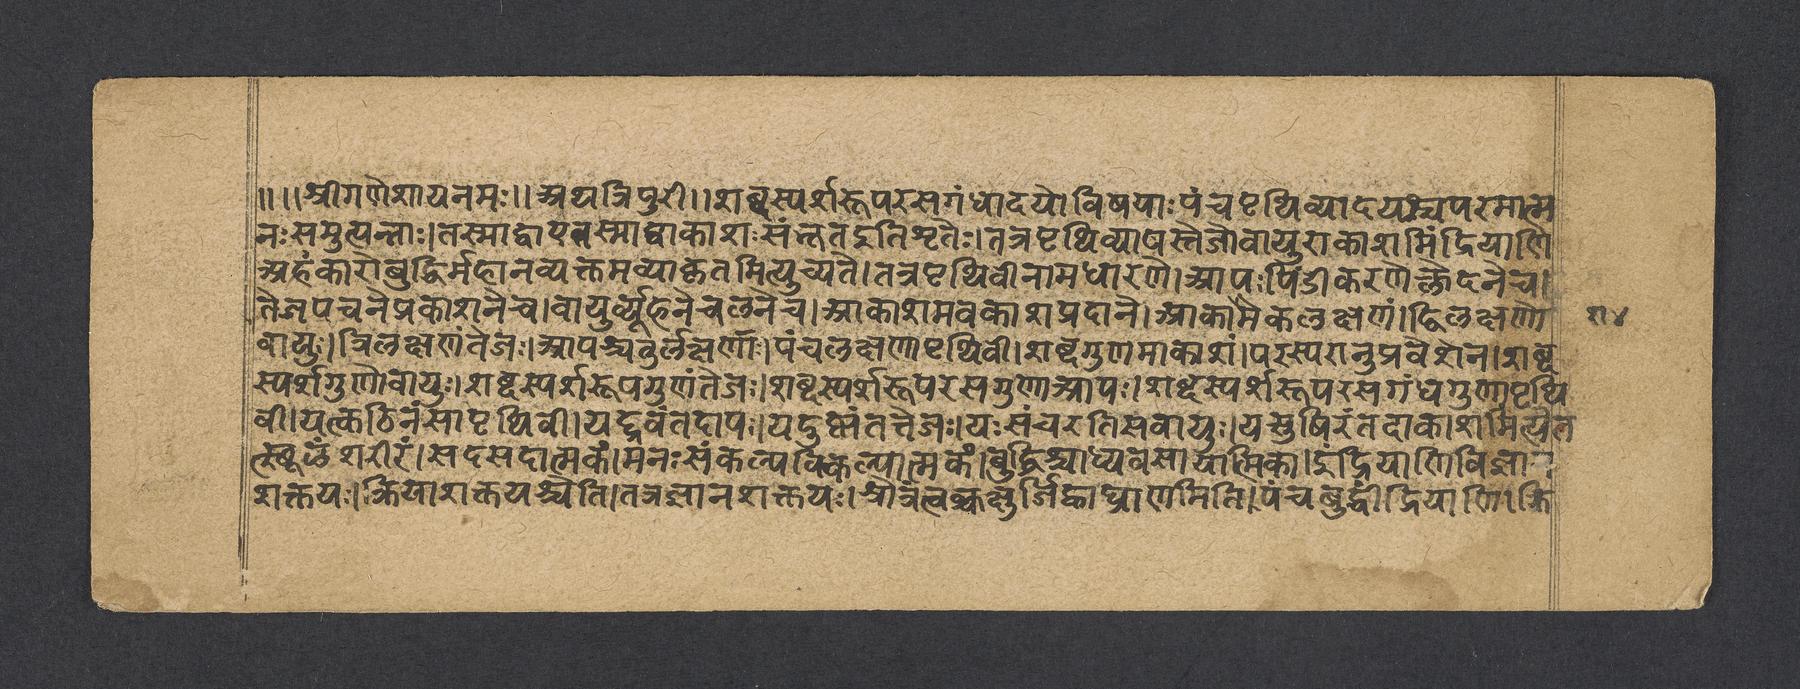 ॥ ॥श्रीगणेशायनमः॥ अथत्रिपुरी॥ शब्दस्पर्शरूपरसगंधादयोविषयाः पंचपृथिव्यादयश्चपरमात्म
नः समुत्पन्नाः।तस्माद्वाएतस्माद्वाकाशः संभूतइतिश्रुतेः।तत्रपृथिव्यापस्तेजोवायुराकाशमिंद्रियाणि
अहंकारोबुद्धिर्महानव्यक्तमव्याकृतमित्युच्यते।तत्रपृथिवीनामधारणे।आपः पिंडीकरणेक्लेदनेच।
तेजपचनेप्रकाशनेच।वायुर्व्यूहनेचलनेच।आकाशमवकाशप्रदाने।आकाशमेकलक्षणं।द्विलक्षणो
वायुः।त्रिलक्षणंतेजः।आपश्चतुर्लक्षणाः।पंचलक्षणापृथिवी।शब्दगुणमाकाशं।परस्परानुप्रवेशेन।शब्द
स्पर्शगुणोवायुः।शब्दस्पर्शरूपगुणंतेजः।शब्दस्पर्शरूपरसगुणाआपः।शब्दस्पर्शरूपरसगंधगुणापृथि
वी।यत्कठिनंसापृथिवी।यद्द्रवंतदापः।यदुष्णंतत्तेजः।यः संचरतिसवायुः।यत्सुषिरंतदाकाशमित्येत
त्स्थूलंशरीरं।सदसदात्मकं।मनः संकल्पविकल्पात्मकं।बुद्धिश्चाध्यवसायात्मिका।इंद्रियाणिविज्ञान
शक्तयः।क्रियाशक्तयश्चेति।तत्रज्ञानशक्तयः।श्रोत्रंत्वक्चक्षुर्जिह्वाघ्राणमिति।पंचबुद्धींद्रियाणि।क्रि